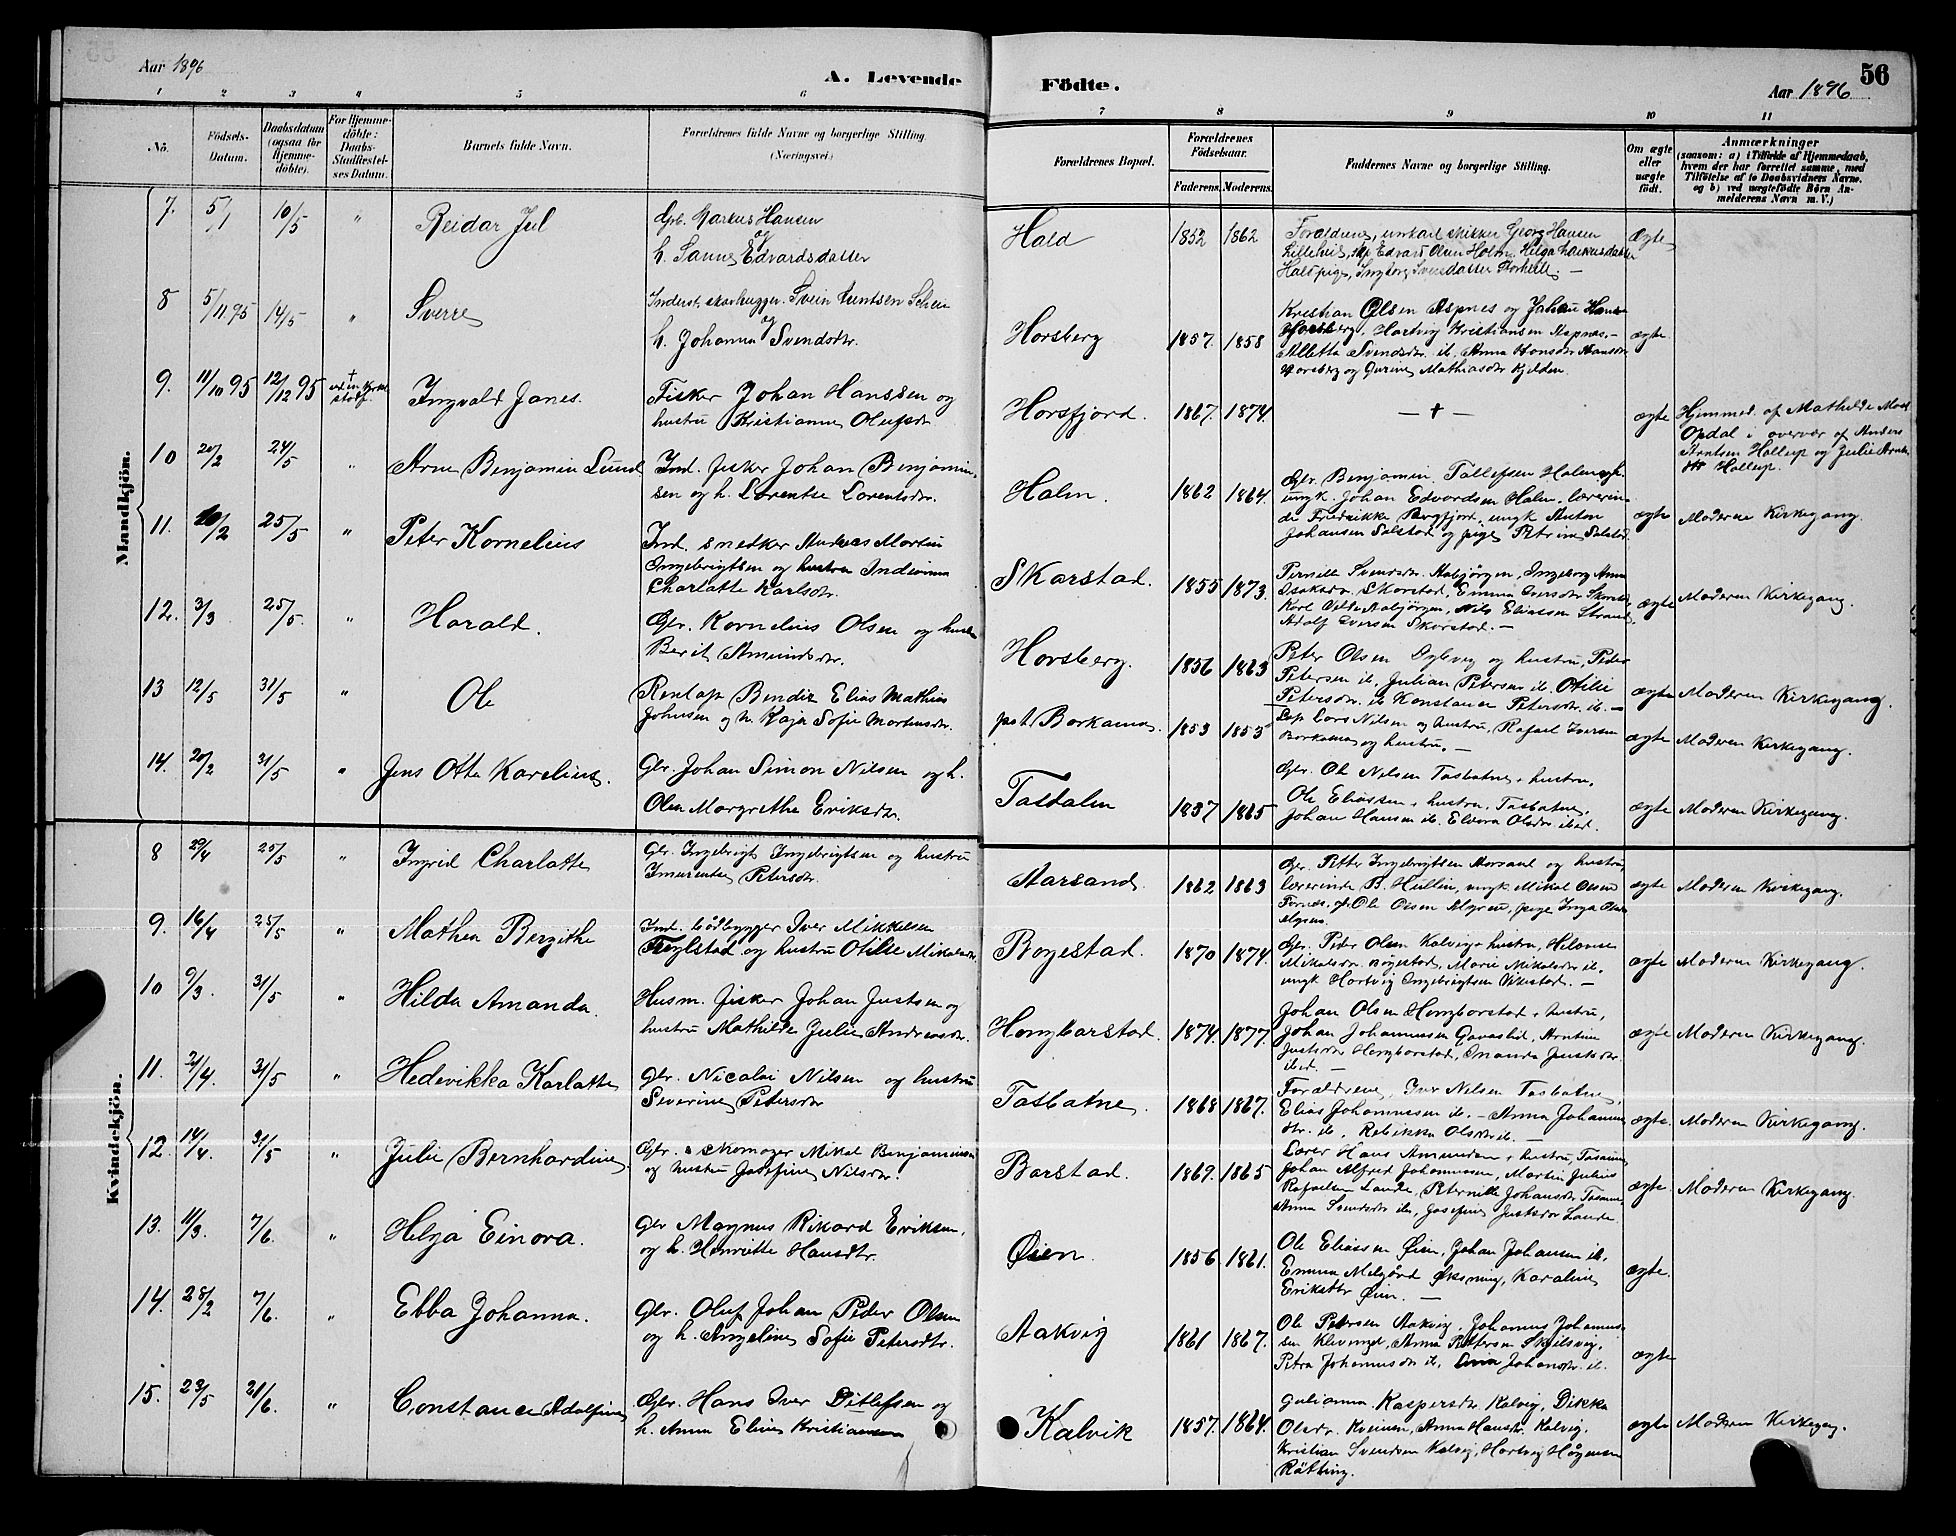 Aar 1896
A. Levende
Födte.
Aar 1896
56
1 2 3 " 5 6 7 8 9 10 11
No.
Födsels-Datum.
Daabsdatum (ogsaa for Hjemme-döbte).
For Hjemme-döbte: Daabs-Stadfæstel-ses Datum.
Barnets fulde Navn.
Forældrenes fulde Navne og borgerlige Stilling. (Næringsvei.)
Forældrenes Bopæl.
Forældrenes Födselsaar.
Faderens. Moderens.
Faddernes Navne og borgerlige Stilling.
Om ægte eller uægte födt.
Anmærkninger
(saasom: a) i Tilfælde af Hjemmedaab, hvem der har forrettet samme, med Tilföielse af to Daabsvidners Navne. og b) ved uægtefödte Börn An-melderens Navn m. V.)
Mandkjön.
7. 5/1 10/5 " Reidar Jul
Gbr. Markus Hansen
og
h. Sanna Edvardsdatter
Hald 1852 1862
Forældrene, Georg Hansen
Edvard Olsen Holm, Helga Markusdatter
Ingborg Svendsdatter
Ægte
8 5/11 95 14/5 " Sverre
Inderst, skovhugger. Svein
og
h. Johanna Svendsdr.
Horsberg 1857. 1858
Kristian Olsen Aspnes og Johan Hansen
Horsberg, Hartvig Kristiansen Aspnes. -
Alletta Svendsdr. ib. Anna Hansdr
Horsberg og Gurine Mathiasdr Kjelden.
ægte
9. 11/10 95 12/12 95 + Ingvald Janes.
Fisker Johan Hanssen og
hustru Kristianne Olufsdr
Horsfjord. 1867. 1874.
- + -
ægte
Hjemmed. af Mathilde
Opdal i overvær af Anders
Arntsen Hallup og Julie Arnts-
dtr Hallup.
10 20/2 24/5 " Arne Benjamin Lund
Ind. fisker Johan Benjamin-
sen og h. Lorentse Lorentsdr.
Halm. 1862 1864.
Gbr. Benjamin Tollefsen Holm
ungk. Johan Edvardsen Halm. lærerin-
de Fredrikke Bergfjord. ungk Anton
Johansen Salstad og pige Petrine Salstad.
ægte
Moderne Kirkegang.
11. 10/2 25/5 " Peter Kornelius
Ind. snedker Andreas Martin
Ingebrigtsen og hustru Indianna
Charlatte Karlsdr.
Skarstad. 1855 1873.
Pernille Svendsdr. Aabjörgen, Ingeborg Anna
Isaksdr. Skarstad, Emma Iversdr Skarstad,
Karl Aabjörgen, Nils Eliassen Strand,
Adolf Iversen Skarstad. -
ægte
Moderen Kirkegang.
12. 3/3 25/5 " Harald.
Gbr. Kornelius Olsen og hustru
Berit Amundsdr.
Horsberg. 1856 1863
Peter Olsen og hustru, Peder
Petersen ib, Julian Petersen ib. Otilie
Petersdr. ib Konstance Petersdr. ib. -
ægte
Moderen Kirkegang.
13 12/5 31/5 " Ole
Bendix Elias Mathias
Johnsen og h. Kaja Sofie Mortensdr.
Borkamo. 1853 1855
Lars Nilsen og hustru, Rafael Iversen
Borkamo og hustru. -
ægte
Moderen Kirkegang.
14. 20/2 31/5 " Jens Otto Karelius.
Gbr. Johan Simon Nilsen og h.
Olea Margrethe Eriksdr.
Tosdalen 1837 1865
Gbr. Ole Nilsen Tosbatne + hustru,
Ole Eliassen + hustru, Tosbatne,
Johan Hansen ib. Elvora Olsdr ibid.
ægte
Moderen Kirkegang.
Kvindekjön.
8 29/4 25/5 " Ingrid Charlatte
Gbr. Ingebrigt Ingebrigtsen og hustru
Imarentse Petersdr.
Aarsand. 1862 1863
Gbr. Petter Ingebrigtsen Aarsand og hustru
lærerinde B. Hullin, ungk Mikal Olsen
Ole Olsen Myren, pige Inga Olsdr
Myren.
ægte
Moderen Kirkegang.
9. 16/4 25/5 " Mathea Bergithe
Ind. bådbygger Iver Mikkelsen
Fuglstad og hustru Otilie Mikalsdr
Bogestad. 1870 1874.
Gbr. Peder Olsen Kalvig + hustru,
Mikalsdr. Bogestad, Marie Mikalsdr ib.
ungk Hartvig Ingebrigtsen -
ægte
Moderen Kirkegang.
10 9/3. 31/5 " Hilda Amanda.
Husm. fisker Johan Justsen og
hustru Mathilde Julie Andreasdr.
Hongbarstad. 1874. 1877.
Johan Olsen Hongborstad + hustru,
Johan Johannessen Gaaslid, Arntine
Justsdr Hongborstad, Inanda Justsdr
ibid. -
ægte
Moderen Kirkegang.
11. 21/4. 31/5 " Hedevikka Karlatte
Gbr. Nicolai Nilsen og hustru
Severine Petersdr
Tosbatne. 1868 1867.
Forældrene, Iver Nilsen Tosbatne,
Elias Johannessen ib. - Anna Johannes-
dtr. ib, Rebikka Olsdr ib. -
ægte.
Moderen Kirkegang.
12. 14/4. 31/5 " Julie Bernhardine
Gbr. & skomager Mikal Benjaminsen
og hustru Josefine Nilsdr.
Barstad. 1869. 1865
Lærer Hans Amundsen + hustru,
Johan Alfred Johannessen, Martin Julius
Rafaelsen Lande, Peternille Johansdr
Anna Svendsdr ib, Josefine Justsdr Lande.
ægte.
Moderen Kirkegang.
13. 11/3. 7/6. " Helga Einora.
Gbr Magnus Rikard Eriksen,
og h. Henriette Hansdtr.
Øien. 1856. 1861.
Ole Eliassen Øien, Johan Johansen ib,
Emma Milgård Øksning, Karoline
Eriksdtr Øien. -
ægte.
14. 28/2 7/6. " Ebba Johanna.
Gbr. Oluf Johan Peder Olsen
og h. Angeline Sofie Petersdtr.
Aakvig 1861 1867.
Ole Petersen Aakvig, Johannes Johannes-
sen Anna Pettersen
Petra Johannesdr ib, Johansdr. ib.
ægte
15. 23/5 21/6. " Constance Adolfine
Gbr. Hans Iver Ditlefsen og
h. Anna Eline Kristiansen
Kalvik 1857. 1864.
Julianna Kaspersdr. Kalvig, Dikka
Olsdr. Anna Hansdr. Kalvig,
Kristian Svendsen Kalvig, Hartvig Hågensen
Råtting.
ægte
Moderen Kirkegang.